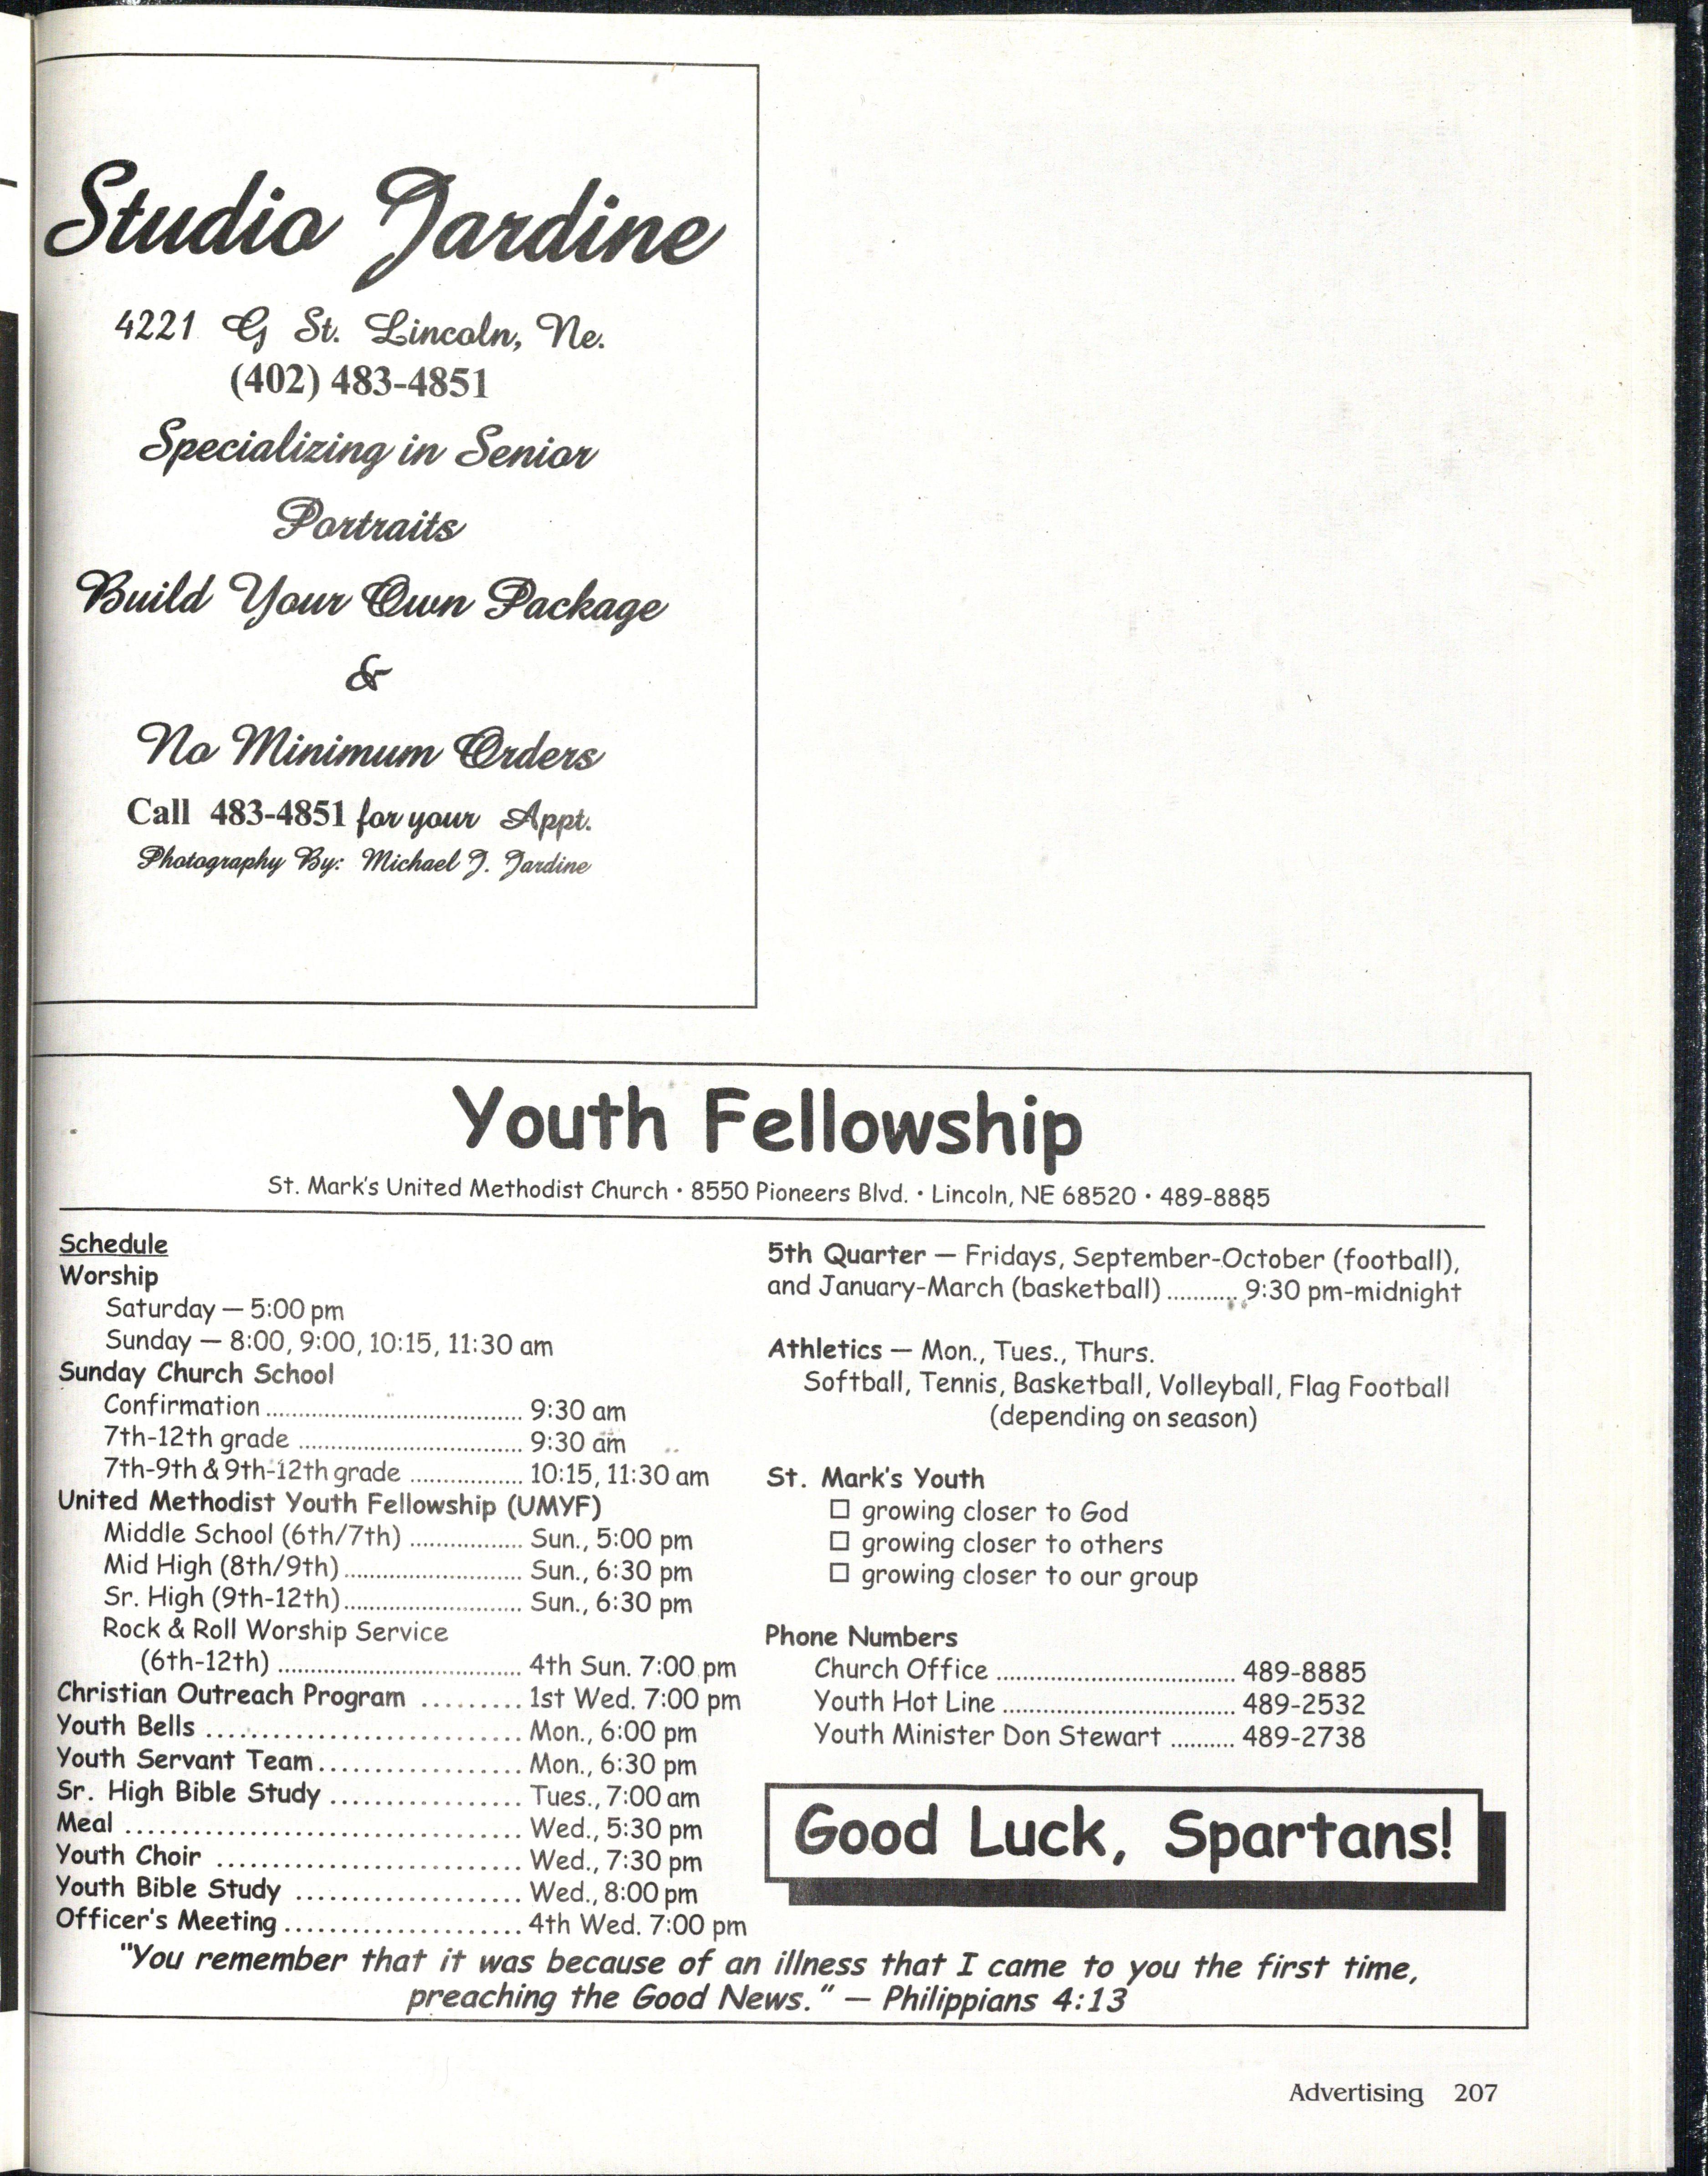 Studio Jardine
4221 G St. Lincoln, Ne.
(402) 483-4851
Specializing in Senior
Portraits
Build Your Own Package
&
No Minimum Orders
Call 483-4851 for your Appt.
Photography By: Michael J. Jardine
Youth Fellowship
St. Mark's United Methodist Church • 8550 Pioneers Blvd. • Lincoln, NE 68520 • 489-8885
Schedule
Worship
Saturday — 5:00 pm
Sunday — 8:00, 9:00, 10:15, 11:30 am
Sunday Church School
Confirmation ..................................... 9:30 am
7th-12th grade ................................ 9:30 am
7th-9th & 9th-12th grade ................ 10:15, 11:30 am
United Methodist Youth Fellowship (UMYF)
Middle School (6th/7th) ................ Sun., 5:00 pm
Mid High (8th/9th) ......................... Sun., 6:30 pm
Sr. High (9th-12th) ......................... Sun., 6:30 pm
Rock & Roll Worship Service
(6th-12th) ................................... 4th Sun. 7:00 pm
Christian Outreach Program ......... 1st Wed. 7:00 pm
Youth Bells ............................ Mon., 6:00 pm
Youth Servant Team .................. Mon., 6:30 pm
Sr. High Bible Study ................. Tues., 7:00 am
Meal ................................... Wed., 5:30 pm
Youth Choir ........................... Wed., 7:30 pm
Youth Bible Study .................... Wed., 8:00 pm
Officer's Meeting ..................... 4th Wed. 7:00 pm
5th Quarter — Fridays, September-October (football),
and January-March (basketball) ........... 9:30 pm-midnight
Athletics — Mon., Tues., Thurs.
Softball, Tennis, Basketball, Volleyball, Flag Football
(depending on season)
St. Mark's Youth
☐ growing closer to God
☐ growing closer to others
☐ growing closer to our group
Phone Numbers
Church Office ................................... 489-8885
Youth Hot Line .................................. 489-2532
Youth Minister Don Stewart .......... 489-2738
Good Luck, Spartans!
"You remember that it was because of an illness that I came to you the first time,
preaching the Good News." — Philippians 4:13
Advertising 207